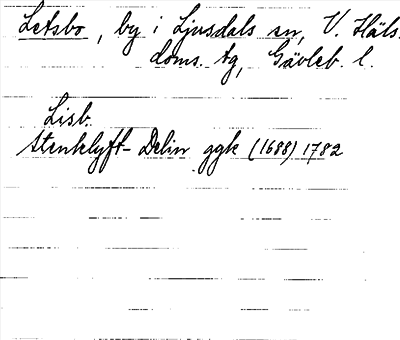 Letsbo, by i Ljusdals sn, V. Häls.
doms. tg, Gävleb. l.
Lisb.
Stenklyft-Delin ggk (1688) 1782